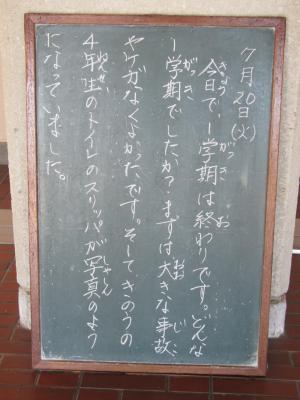 7月20日(火)
今日で、1学期は終わりです。どんな
1学期でしたか？まずは大きな事故
やケガがなくよかったです。そしてきのうの
4年生のトイレのスリッパが写真のよう
になっていました。